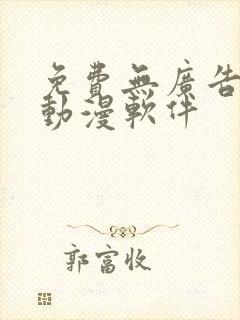 免費無廣告
動漫軟件
郭富收